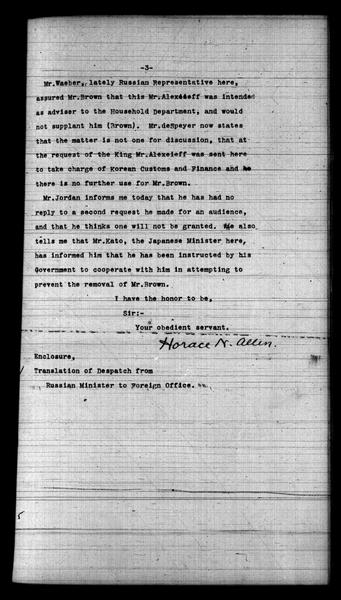 -3-
Mr.Waeber, lately Russian Representative here,
assured Mr.Brown that this Mr.Alexeieff was intended
as adviser to the Household Department, and would
not supplant him (Brown). Mr.deSpeyer now states
that the matter is not one for discussion, that at
the request of the King Mr.Alexeieff was sent here
to take charge of Korean Customs and Finance and
there is no further use for Mr.Brown.
Mr.Jordan informs me today that he has had no
reply to a second request he made for an audience,
and that he thinks one will not be granted. He also
tells me that Mr.Kato, the Japanese Minister here,
has informed him that he has been instructed by his
Government to cooperate with him in attempting to
prevent the removal of Mr.Brown.
I have the honor to be,
Sir:-
Your obedient servant.
Horace N. Allen.
Enclosure,
Translation of Despatch from
Russian Minister to Foreign Office.